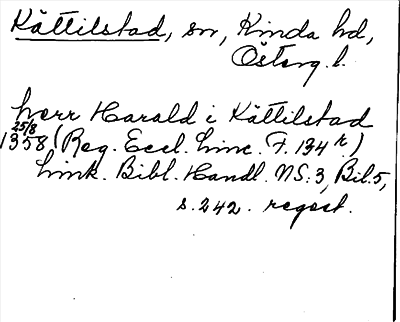 Kättilstad, sn, Kinda hd,
Österg. l.
herr Harald i Kättilstad
25/8
1358 (Reg. Eccl. Linc. F. 134 r.)
Link. Bibl. Handl. NS: 3, Bil. 5,
s. 242. regest.